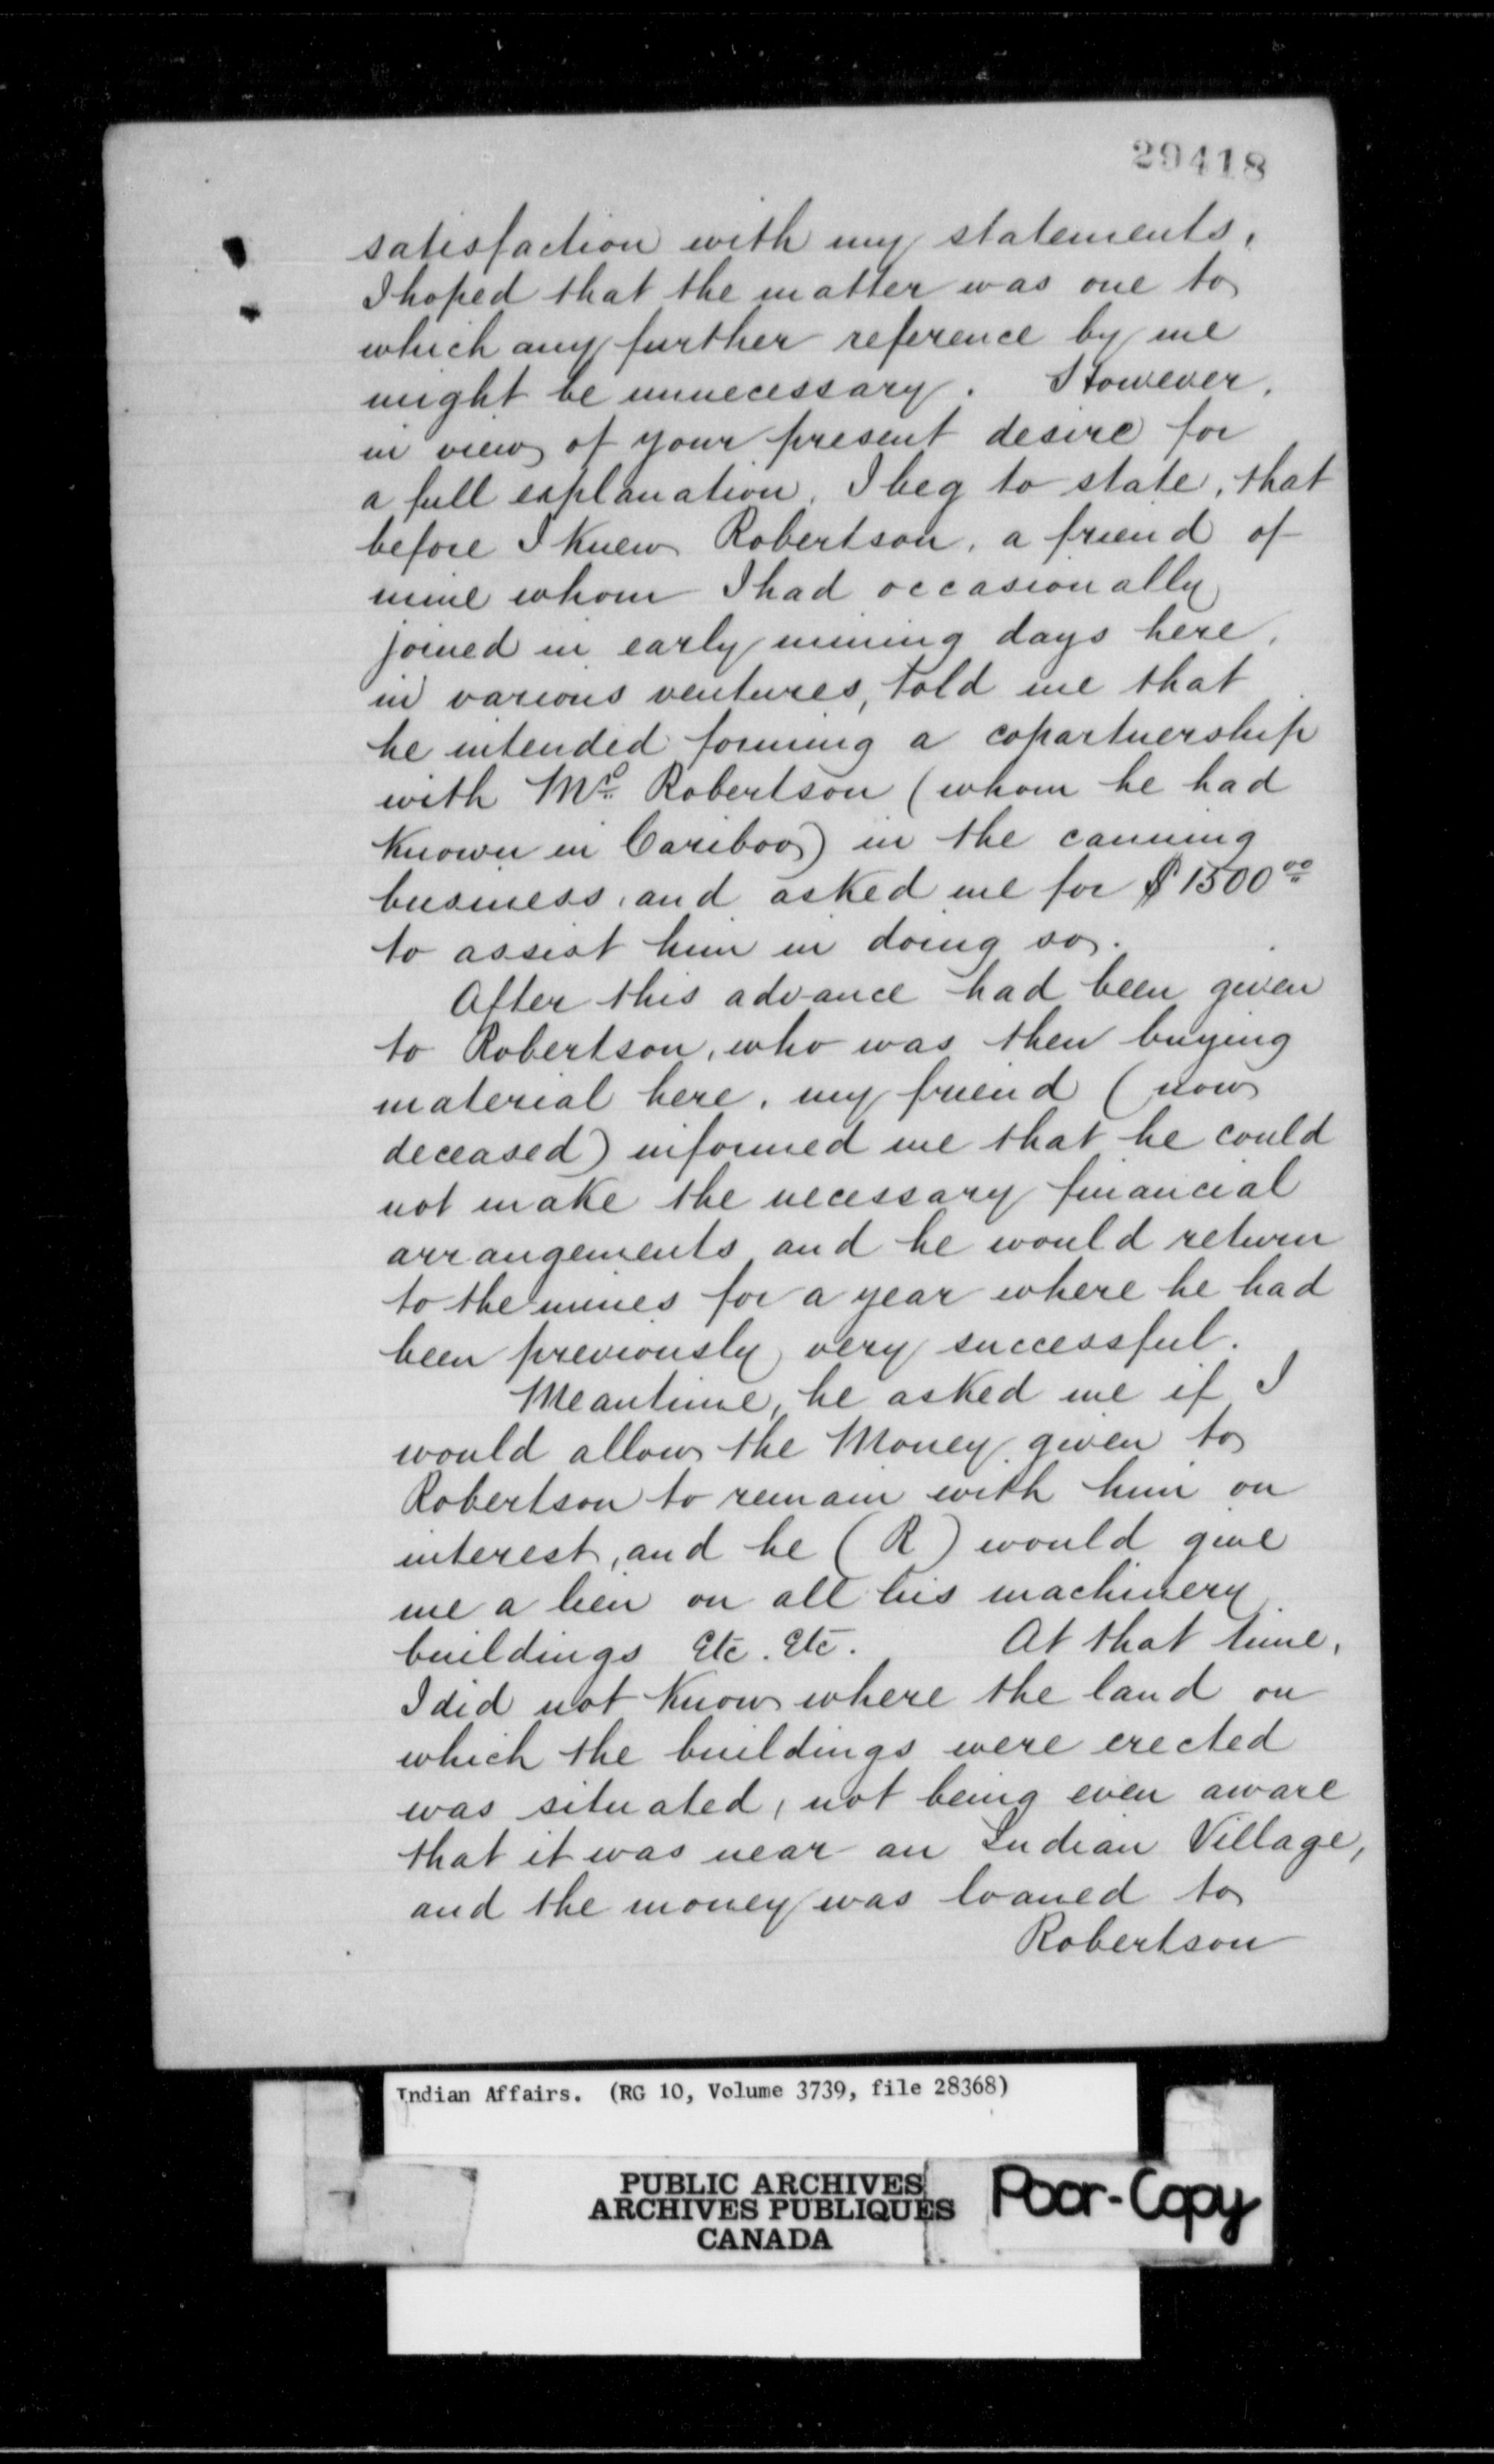 29418
satisfaction with my statements,
I hoped that the matter was one to
which any further reference by me
might be unnecessary. However,
in view of your present desire for
a full explanation, I beg to state, that
before I knew Robertson, a friend of
mine whom I had occasionally
joined in early mining days here,
in various ventures, told me that
he intended forming a copartnership
with Mr. Robertson (whom he had
known in Cariboo) in the canning
business, and asked me for $1500.00
to assist him in doing so.
After this advance had been given
to Robertson, who was then buying
material here, my friend (now
deceased) informed me that he could
not make the necessary financial
arrangements and he would return
to the mines for a year where he had
been previously very successful.
Meantime, he asked me if I
would allow the Money given to
Robertson to remain with him on
interest, and he (R) would give
me a lien on all his machinery
buildings Etc. Etc. At that time,
I did not know where the land on
which the buildings were erected
was situated, not being even aware
that it was near an Indian Village,
and the money was loaned to
Robertson
Indian Affairs. (RG 10, Volume 3739, file 28368)
PUBLIC ARCHIVES
ARCHIVES PUBLIQUES
CANADA
Poor-Copy